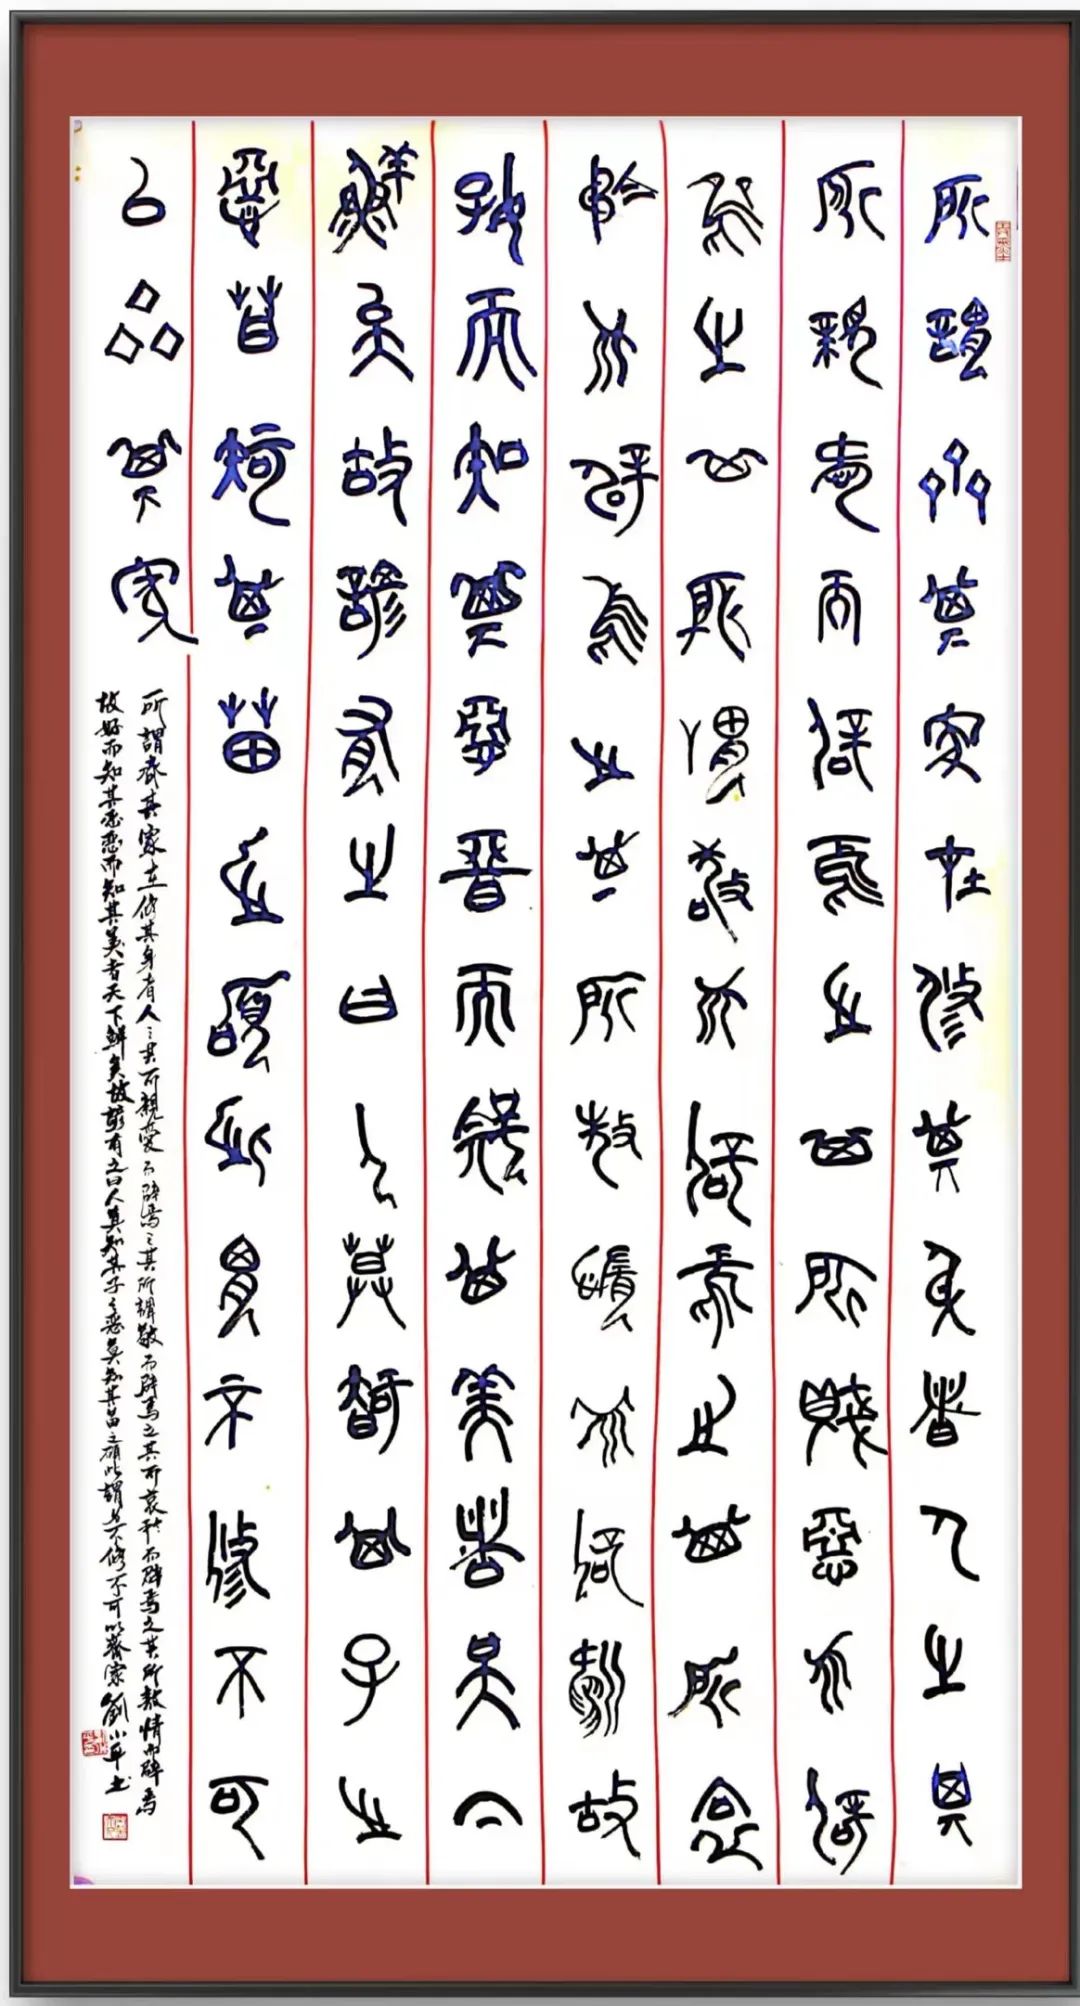 所謂齊其家在修其身者人之其
所親愛而辟焉之其所賤惡而辟
焉之其所畏敬而辟焉之其所哀
矜而辟焉之其所敖惰而辟焉故
好而知其惡惡而知其美者天下
鮮矣故諺有之曰人莫知其子之
惡莫知其苗之碩此謂不修不可
以齊其家
所謂齊其家在修其身者人之其所親愛而辟焉之其所謂敬而辟焉之其所哀矜而辟焉之其所敖惰而辟焉
故好而知其惡惡而知其美者天下鮮矣故諺有之曰人莫知其子之惡莫知其苗之碩此謂身不修不可以齊家劉小平書